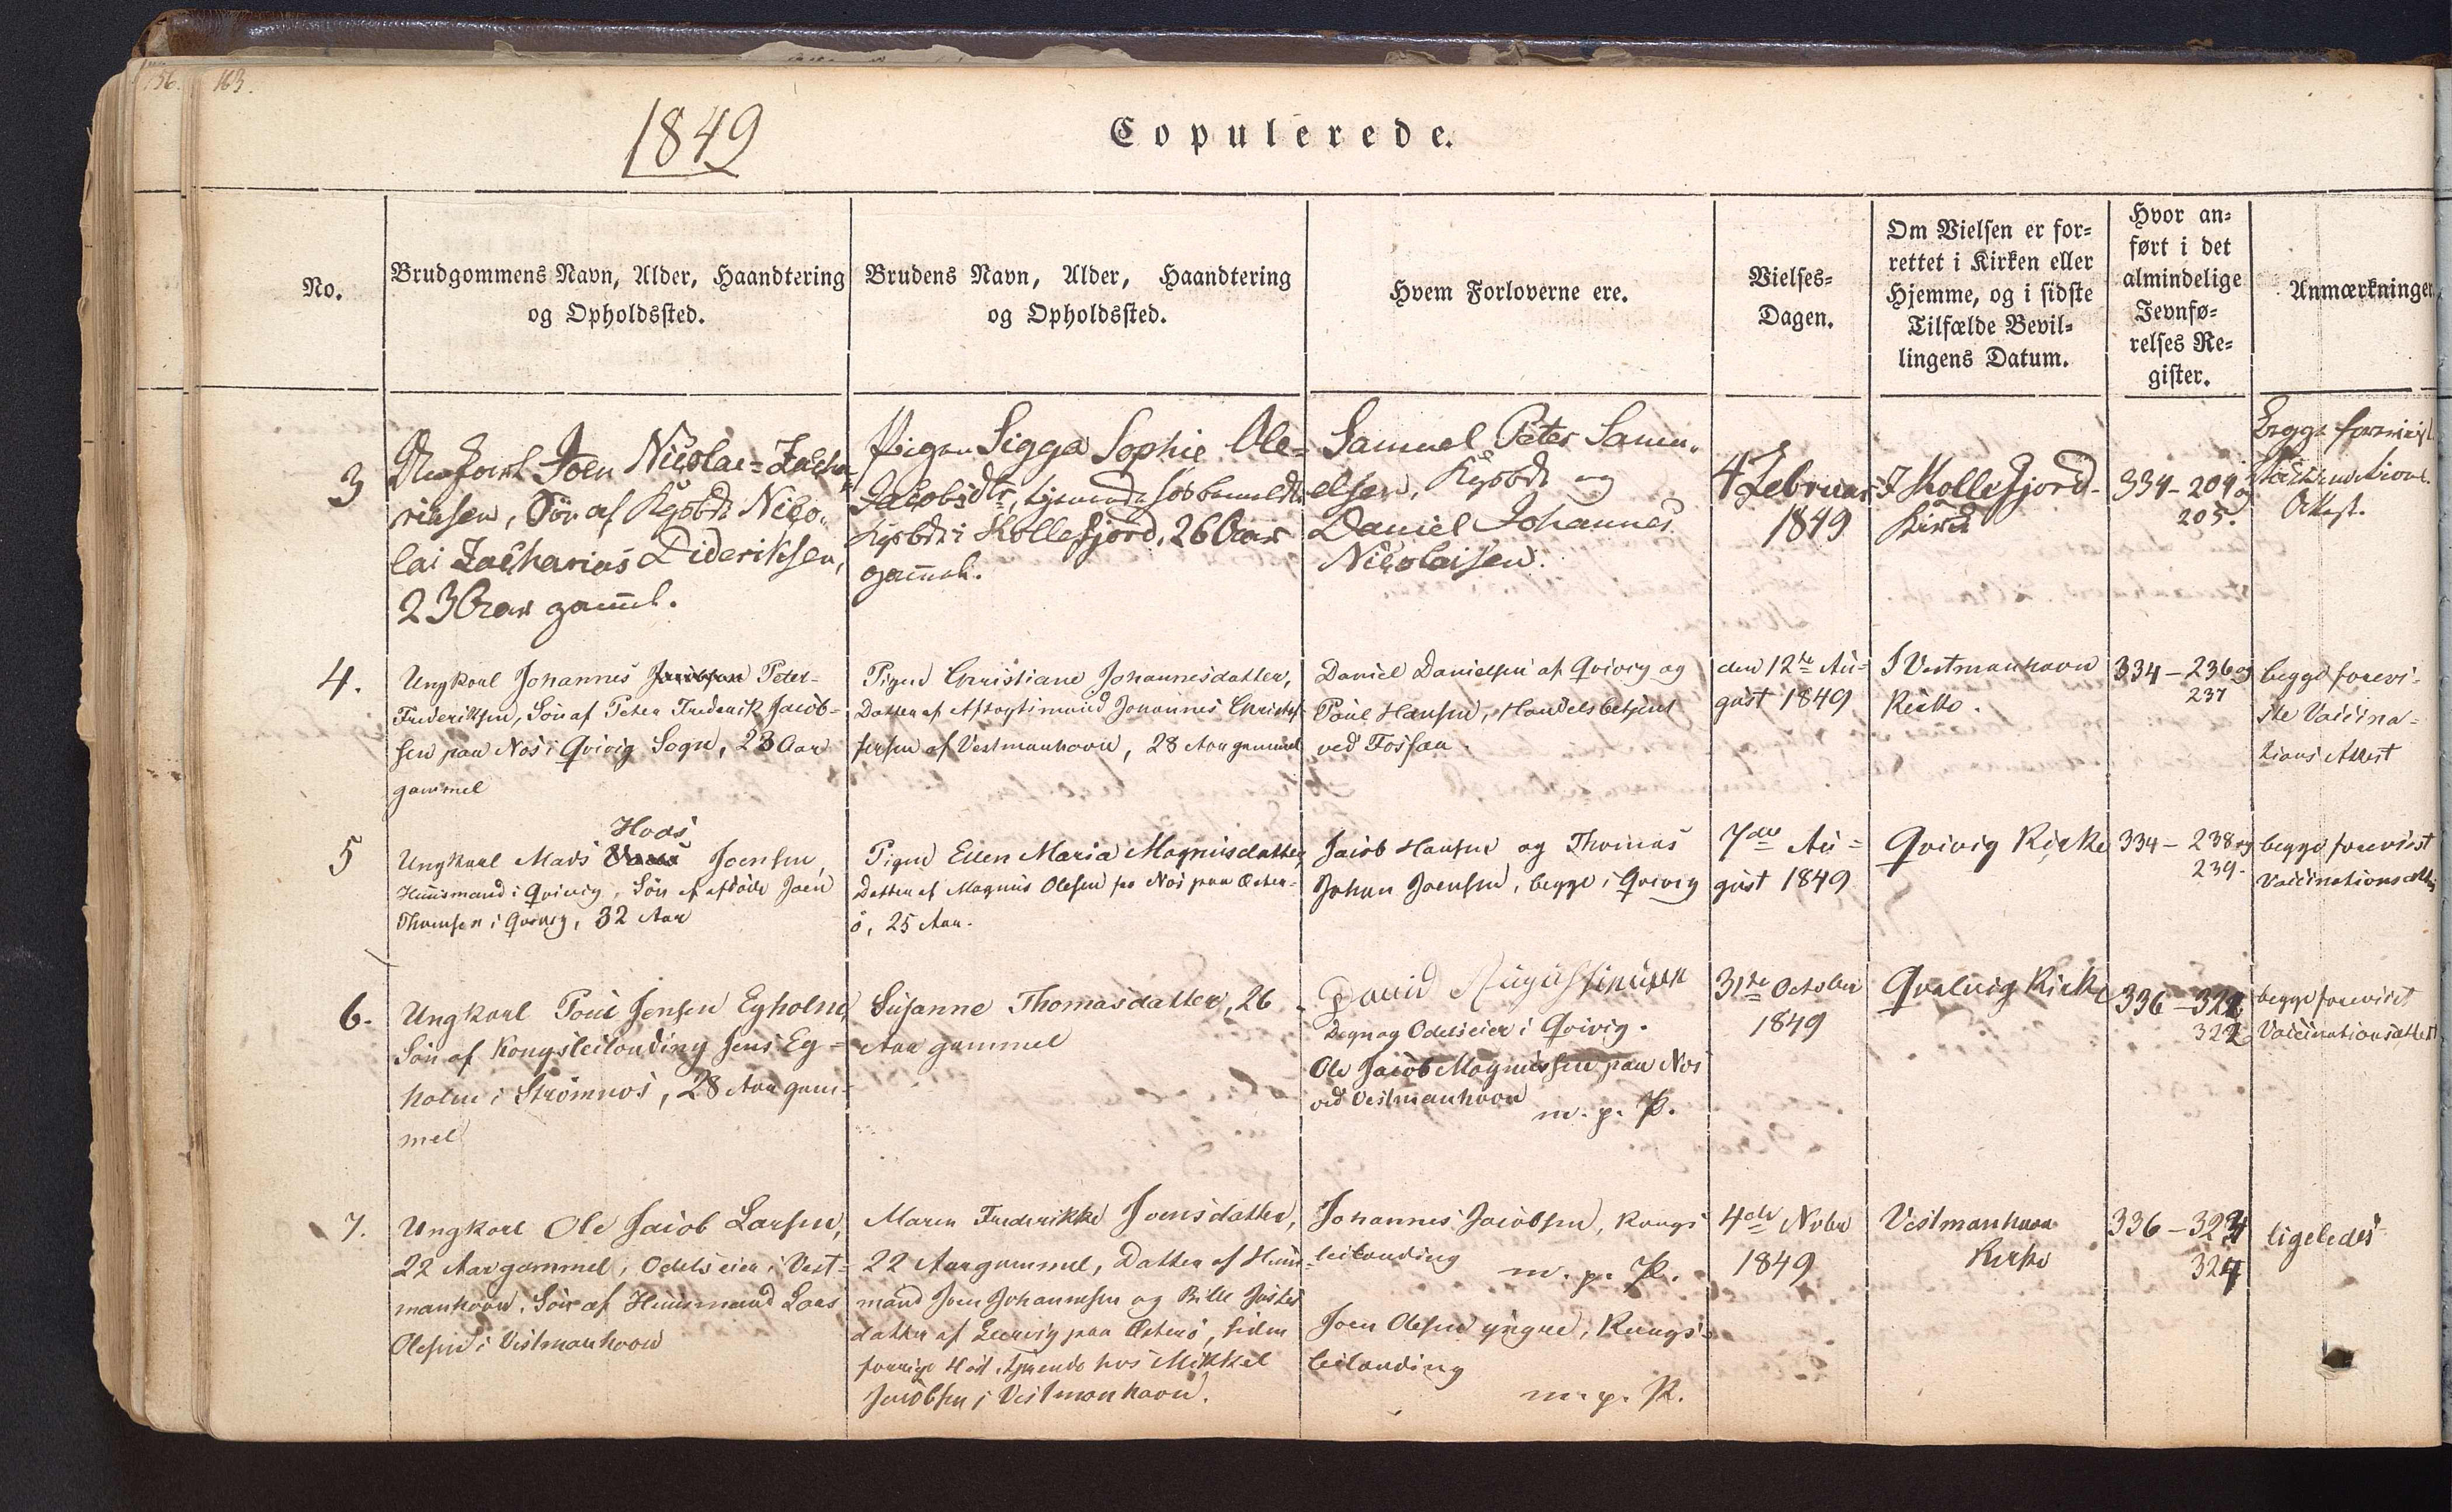 156. 163.
1849
Copulerede.
No.
Brudgommens Navn, Alder, Haandtering
og Opholdssted.
Brudens Navn, Alder, Haandtering
og Opholdssted.
Hvem Forloverne ere.
Vielses-
Dagen.
Om Vielsen er for-
rettet i Kirken eller
Hjemme, og i sidste
Tilfælde Bevil-
lingens Datum.
Hvor an-
ført i det
almindelige
Jevnfø-
relses Re-
gister.
Anmærkninger
3
Ungkarl Joen Nicolai=Zacha-
riasen, Søn af Kgsbdr Nico-
lai Zacharias Dideriksen,
23 Aar gaml.
Pigen Sigga Sophie Ole-
Jacobsdtr, tjenende hos
Kgsbdr i Kollefjord, 26 Aar
gaml.
Samuel Peter Samu-
elsen, Kgsbdr og
Daniel Johannes
Nicolaisen.
4 Februar
1849
I Kollefjord
Kirke
334-204 og
205.
Begge foreviist
Vaccinations
Attest.
4.
Ungkarl Johannes Jacobsen Peter-
Frederiksen, Søn af Peter Frederik Jacob-
sen paa Nos i Qvivig Sogn, 23 Aar
gammel
Pigen Christiane Johannesdatter,
Datter af Aftægtsmand Johannes Christof-
fersen af Vestmanhavn, 28 Aar gammel
Daniel Danielsen af Qvivig og
Poul Hansen, Handelsbetjent
ved Fossaa.
den 12te Au-
gust 1849
I Vestmanhavn
Kirke.
334-236 og
237
begge forevi-
ste Vaccina-
tions Attest
5
Hods
Ungkarl Mads Joensen,
Huusmand i Qvivig, Søn af afdøde Joen
Thomsen i Qvivig, 32 Aar
Pigen Ellen Maria Magnusdatter,
Datter af Magnus Olesen fra Nos paa Øster-
ø, 25 Aar.
Jacob Hansen og Thomas
Johan Joensen, begge i Qvivig
7de Au-
gust 1849
Qvivig Kirke
334-238 og
239.
begge foreviist
Vaccinationsattest
6.
Ungkarl Poul Jensen Egholm,
Søn af Kongsleilænding Jens Eg-
holm i Strømnæs, 28 Aar gam-
mel
Susanne Thomasdatter, 26
Aar gammel
David Augustinusen
Degn og Odelseier i Qvivig.
Ole Jacob Magnussen paa Nos
ved Vestmanhavn m. p. P.
31te October
1849
Qvalvig Kirke
336-321
322
begge foreviist
Vaccinationsattest
7.
Ungkarl Ole Jacob Larsen,
22 Aar gammel, Odelseier i Vest-
manhavn, Søn af Huusmand Lars
Olesen i Vestmanhavn
Maren Frederikke Joensdatter,
22 Aar gammel, Datter af Huus-
mand Joen Johannesen og Bille Justes
datter af Leervig paa Østerø, siden
forrige Høst tjenende hos Mikkel
Jacobsen i Vestmanhavn.
Johannes Jacobsen, Kongs
leilænding
m. p. P.
Joen Olesen yngre, Kongs-
leilænding
m. p. P.
4de Novbr
1849
Vestmanhavn
Kirke
336-323
324
ligeledes